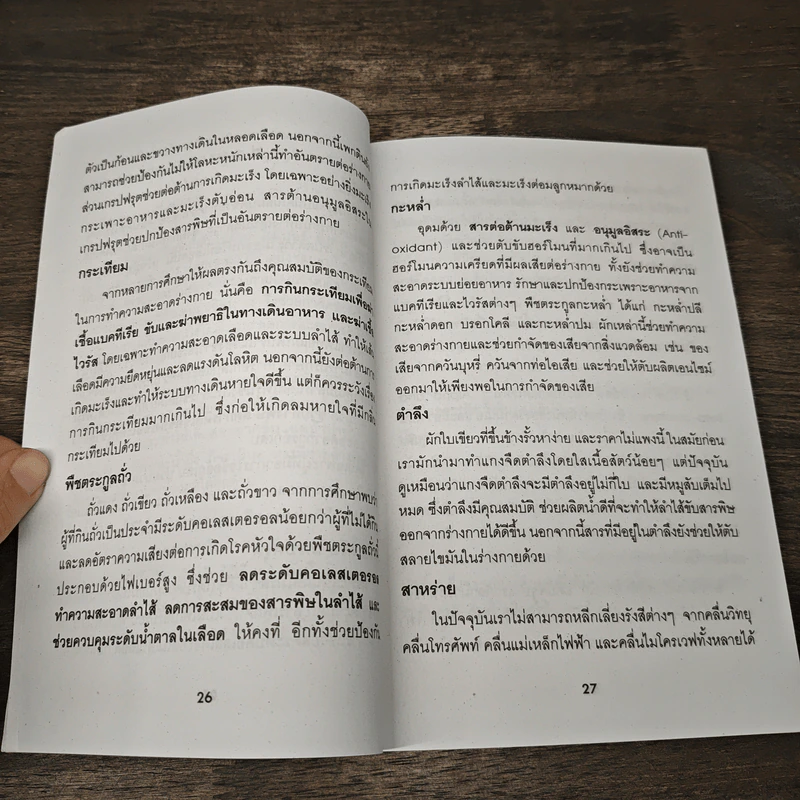 ตัวเป็นก้อนและขวางทางเดินในหลอดเลือด นอกจากนี้เพกติน
สามารถช่วยป้องกันไม่ให้โลหะหนักเหล่านี้ทำอันตรายต่อร่างกาย
ส่วนเกรปฟรุตช่วยต่อต้านการเกิดมะเร็ง โดยเฉพาะอย่างยิ่งมะเร็ง
กระเพาะอาหารและมะเร็งตับอ่อน สารต้านอนุมูลอิสระ
เกรปฟรุตช่วยปกป้องสารพิษที่เป็นอันตรายต่อร่างกาย
กระเทียม
จากหลายการศึกษาให้ผลตรงกันถึงคุณสมบัติของกระเทียม
ในการทำความสะอาดร่างกาย นั่นคือ การกินกระเทียมเพื่อ
เชื้อแบคทีเรีย ขับและฆ่าพยาธิในทางเดินอาหาร และฆ่าเชื้อ
ไวรัส โดยเฉพาะทำความสะอาดเลือดและระบบลำไส้ ทำให้
เลือดมีความยืดหยุ่นและลดแรงดันโลหิต นอกจากนี้ยังต่อต้านการ
เกิดมะเร็งและทำให้ระบบทางเดินหายใจดีขึ้น แต่ก็ควรระวังเรื่อง
การกินกระเทียมมากเกินไป ซึ่งก่อให้เกิดลมหายใจที่มีกลิ่น
กระเทียมไปด้วย
พืชตระกูลถั่ว
ถั่วแดง ถั่วเขียว ถั่วเหลือง และถั่วขาว จากการศึกษาพบว่า
ผู้ที่กินถั่วเป็นประจำมีระดับคอเลสเตอรอลน้อยกว่าผู้ที่ไม่ได้กิน
และลดอัตราความเสี่ยงต่อการเกิดโรคหัวใจด้วยพืชตระกูลถั่วนี้
ประกอบด้วยไฟเบอร์สูง ซึ่งช่วย ลดระดับคอเลสเตอรอล
ทำความสะอาดลำไส้ ลดการสะสมของสารพิษในลำไส้ และ
ช่วยควบคุมระดับน้ำตาลในเลือด ให้คงที่ อีกทั้งช่วยป้องกัน
26
การเกิดมะเร็งลำไส้และมะเร็งต่อมลูกหมากด้วย
กะหล่ำ
อุดมด้วย สารต่อต้านมะเร็ง และ อนุมูลอิสระ (Anti-
oxidant) และช่วยดับขับฮอร์โมนที่มากเกินไป ซึ่งอาจเป็น
ฮอร์โมนความเครียดที่มีผลเสียต่อร่างกาย ทั้งยังช่วยทำความ
สะอาดระบบย่อยอาหาร รักษาและปกป้องกระเพาะอาหารจาก
แบคทีเรียและไวรัสต่างๆ พืชตระกูลกะหล่ำ ได้แก่ กะหล่ำปลี
กะหล่ำดอก บรอกโคลี และกะหล่ำปม ผักเหล่านี้ช่วยทำความ
สะอาดร่างกายและช่วยกำจัดของเสียจากสิ่งแวดล้อม เช่น ของ
เสียจากควันบุหรี่ ควันจากท่อไอเสีย และช่วยให้ตับผลิตเอนไซม์
ออกมาให้เพียงพอในการกำจัดของเสีย
ตำลึง
ผักใบเขียวที่ขึ้นข้างรั้วหาง่าย และราคาไม่แพงนี้ ในสมัยก่อน
เรามักนำมาทำแกงจืดตำลึงโดยใส่เนื้อสัตว์น้อยๆ แต่ปัจจุบัน
ดูเหมือนว่าแกงจืดตำลึงจะมีตำลึงอยู่ไม่กี่ใบ และมีหมูสับเต็มไป
หมด ซึ่งตำลึงมีคุณสมบัติ ช่วยผลิตน้ำดีที่จะทำให้ลำไส้ขับสารพิษ
ออกจากร่างกายได้ดีขึ้น นอกจากนี้สารที่มีอยู่ในตำลึงยังช่วยให้ตับ
สลายไขมันในร่างกายด้วย
สาหร่าย
ในปัจจุบันเราไม่สามารถหลีกเลี่ยงรังสีต่างๆ จากคลื่นวิทยุ
คลื่นโทรศัพท์ คลื่นแม่เหล็กไฟฟ้า และคลื่นไมโครเวฟทั้งหลายได้
27